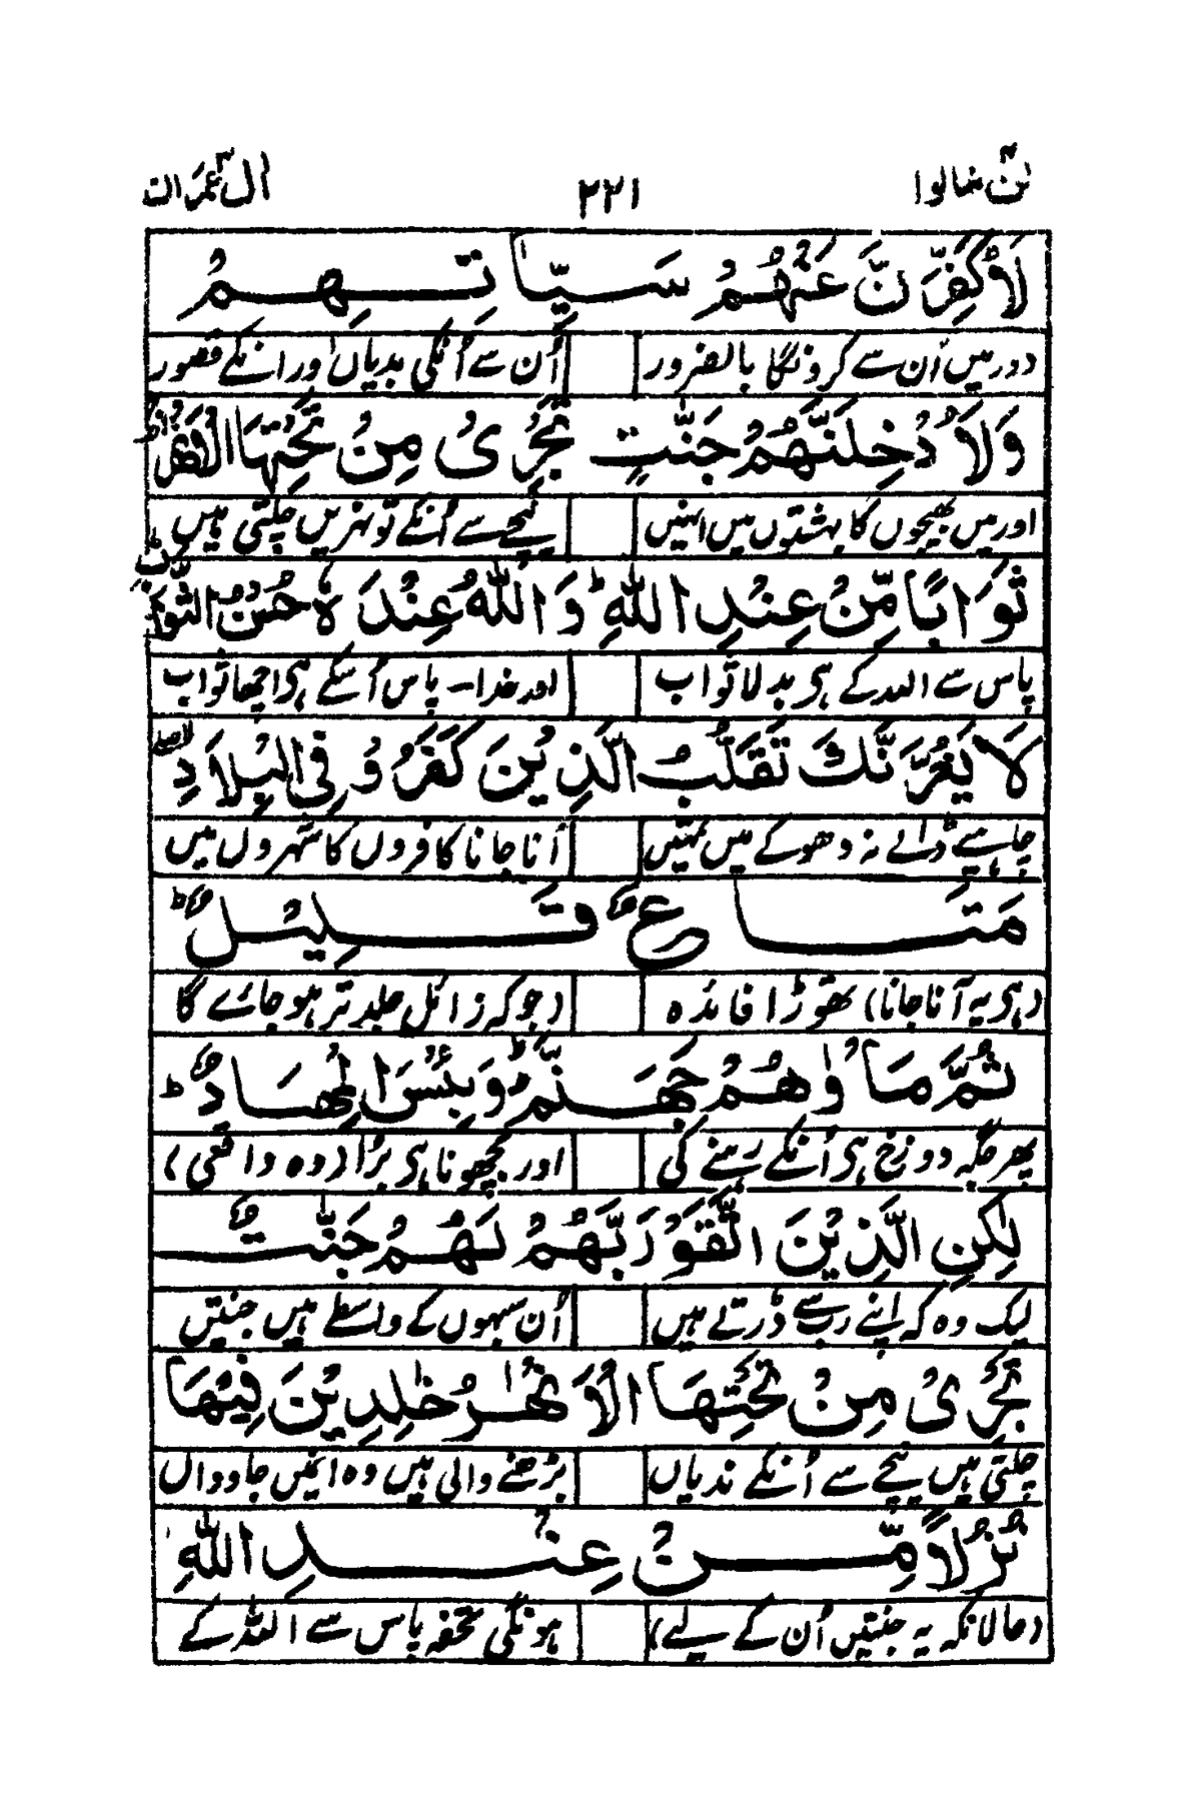 لن تنالوا ٤ ٢٢١ ال عمران ٣
لَاُكَفِّرَنَّ عَنْهُمْ سَيِّاٰتِهِمْ
دور میں اُن سے کرونگا بالضرور اُن سے اُنکی بدیاں اور انکے قصور
وَلَاُدْخِلَنَّهُمْ جَنّٰتٍ تَجْرِىْ مِنْ تَحْتِهَا الْاَنْهٰرُ
اور میں بھیجوں گا بہشتوں میں انہیں نیچے سے اُنکے تو نہریں چلتی ہیں
ثَوَابًا مِّنْ عِنْدِ اللّٰهِ ؕ وَاللّٰهُ عِنْدَهٗ حُسْنُ الثَّوَابِ
پاس سے اللہ کے ہی بدلا ثواب اور خدا۔ پاس اُسکے ہی اچھا ثواب
لَا يَغُرَّنَّكَ تَقَلُّبُ الَّذِيْنَ كَفَرُوْ فِى الْبِلَادِ
چاہیے ڈالے نہ دھوکے میں تمہیں آنا جانا کافروں کا شہروں میں
مَتَاعٌ قَلِيْلٌ ؕ
(ہی یہ آنا جانا) تھوڑا فائدہ (جو کہ زائل جلد تر ہو جائے گا
ثُمَّ مَاْوٰهُمْ جَهَنَّمُ ؕ وَبِئْسَ الْمِهَادُ ؕ
پھر جگہ دوزخ ہی اُنکے رہنے کی اور بچھونا ہی بڑا (وہ واقعی)
لٰكِنِ الَّذِيْنَ اتَّقَوْ رَبَّهُمْ لَهُمْ جَنّٰتٌ
لیک وہ کہ اپنے رب سے ڈرتے ہیں اُن سبہوں کے واسطے ہیں جنتیں
تَجْرِىْ مِنْ تَحْتِهَا الْاَنْهٰرُ خٰلِدِيْنَ فِيْهَا
چلتی ہیں نیچے سے اُنکے ندیاں بڑھنے والی ہیں وہ انمیں جاوداں
نُزُلًا مِّنْ عِنْدِ اللّٰهِ
(حالانکہ یہ جنتیں اُن کے لیے) ہونگی تحفہ پاس سے اللہ کے